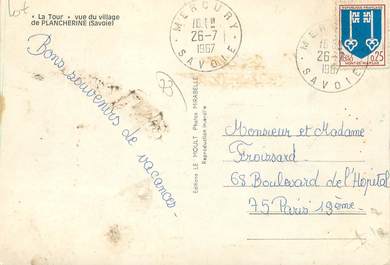 Lot
« La Tour » vue du village
de PLANCHERINE (Savoie)
MERCURY
26-7
1967
SAVOIE
MERCURY
26-7
1967
SAVOIE
RÉPUBLIQUE FRANÇAISE
0,25
MONT-DE-MARSAN
Bons souvenirs de vacances.
Editions LE MOULT Photos MIRABELLE
Reproduction interdite
Monsieur et Madame
Froissard
68 Boulevard de l'Hopital
75 Paris 13ème